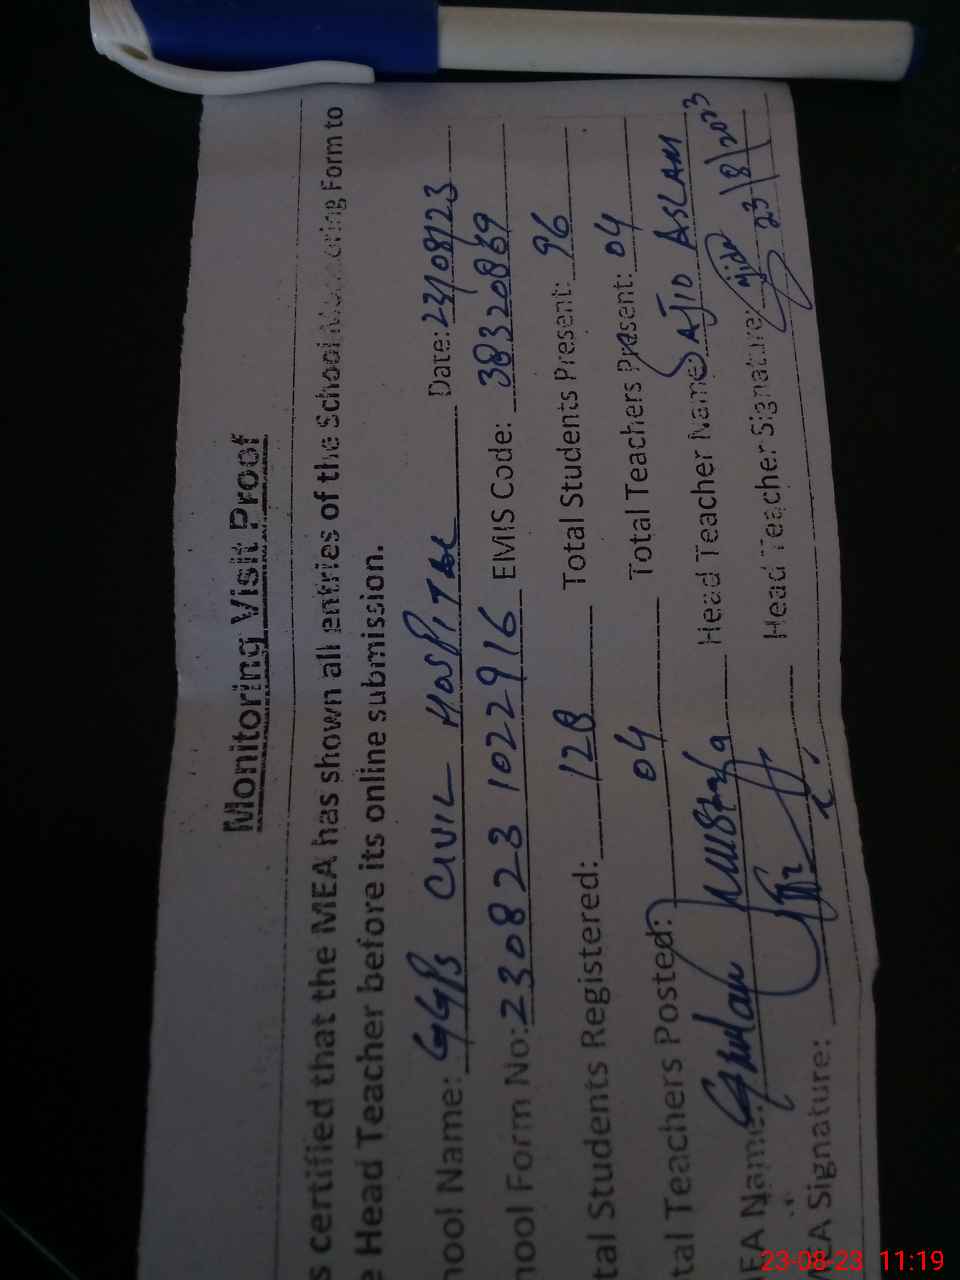 Monitoring Visit Proof
s certified that the MEA has shown all entries of the School Monitoring Form to
e Head Teacher before its online submission.
hool Name: GGPS CIVIL HOSPITAL Date: 23/08/23
hool Form No: 230823 1022916 EMIS Code: 38320869
tal Students Registered: 128 Total Students Present: 96
tal Teachers Posted: 04 Total Teachers Present: 04
EA Name: Ghulam Mustafa Head Teacher Name: SAJID ASLAM
EA Signature: Head Teacher Signature: 23/8/2023
23-08-23 11:19